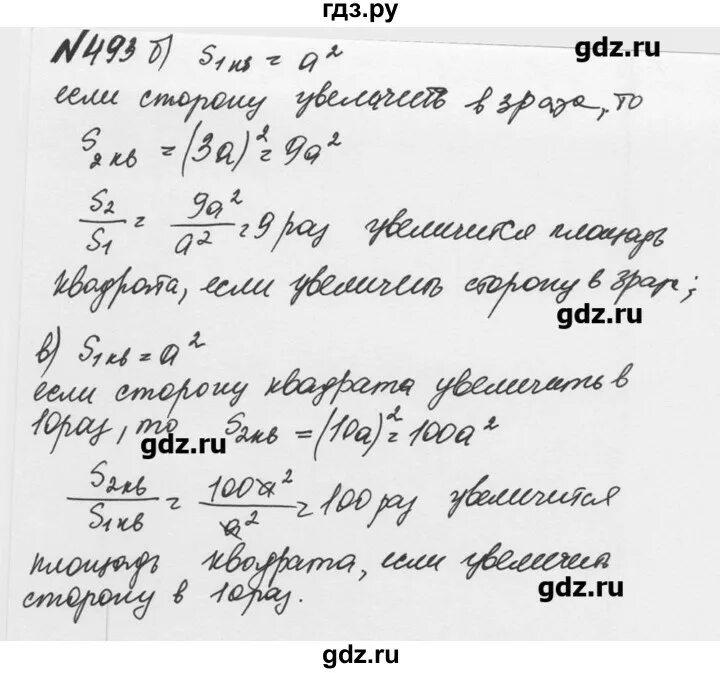 гдз.ру
№493 б) S1кв = a²
gdz.ru
если сторону увеличить в 3 раза, то
S2кв = (3a)² = 9a²
S2/S1 = 9a²/a² = 9 раз увеличится площадь
квадрата, если увеличить сторону в 3 раз;
gdz.ru
в) S1кв = a²
если сторону квадрата увеличить в
10 раз, то S2кв = (10a)² = 100a²
gdz.ru
S2кв/S1кв = 100a²/a² = 100 раз увеличится
площадь квадрата, если увеличить
сторону в 10 раз.
gdz.ru
gdz.ru